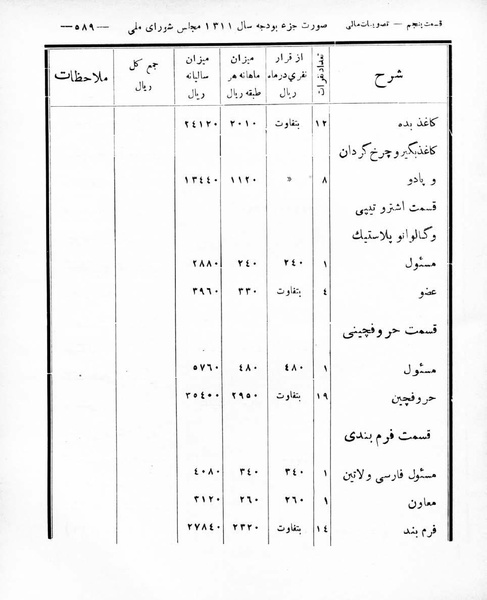 قسمت پنجم — تصویبات مالی    صورت جزء بودجه سال ۱۳۱۱ مجلس شورای ملی    — ۵۸۹ —
شرح    تعداد نفرات    از قرار نفری در ماه ریال    میزان ماهانه هر طبقه ریال    میزان سالیانه ریال    جمع کل ریال    ملاحظات
کاغذ بده    ۱۲    بتفاوت    ۲۰۱۰    ۲۴۱۲۰
کاغذ بگیر و چرخ گردان
و پادو    ۸    »    ۱۱۲۰    ۱۳۴۴۰
قسمت اشترو تیپی
و گالوانو پلاستیک
مسئول    ۱    ۲۴۰    ۲۴۰    ۲۸۸۰
عضو    ۴    بتفاوت    ۳۳۰    ۳۹۶۰
قسمت حروفچینی
مسئول    ۱    ۴۸۰    ۴۸۰    ۵۷۶۰
حروفچین    ۱۹    بتفاوت    ۲۹۵۰    ۳۵۴۰۰
قسمت فرم بندی
مسئول فارسی و لاتین    ۱    ۳۴۰    ۳۴۰    ۴۰۸۰
معاون    ۱    ۲۶۰    ۲۶۰    ۳۱۲۰
فرم بند    ۱۴    بتفاوت    ۲۳۲۰    ۲۷۸۴۰